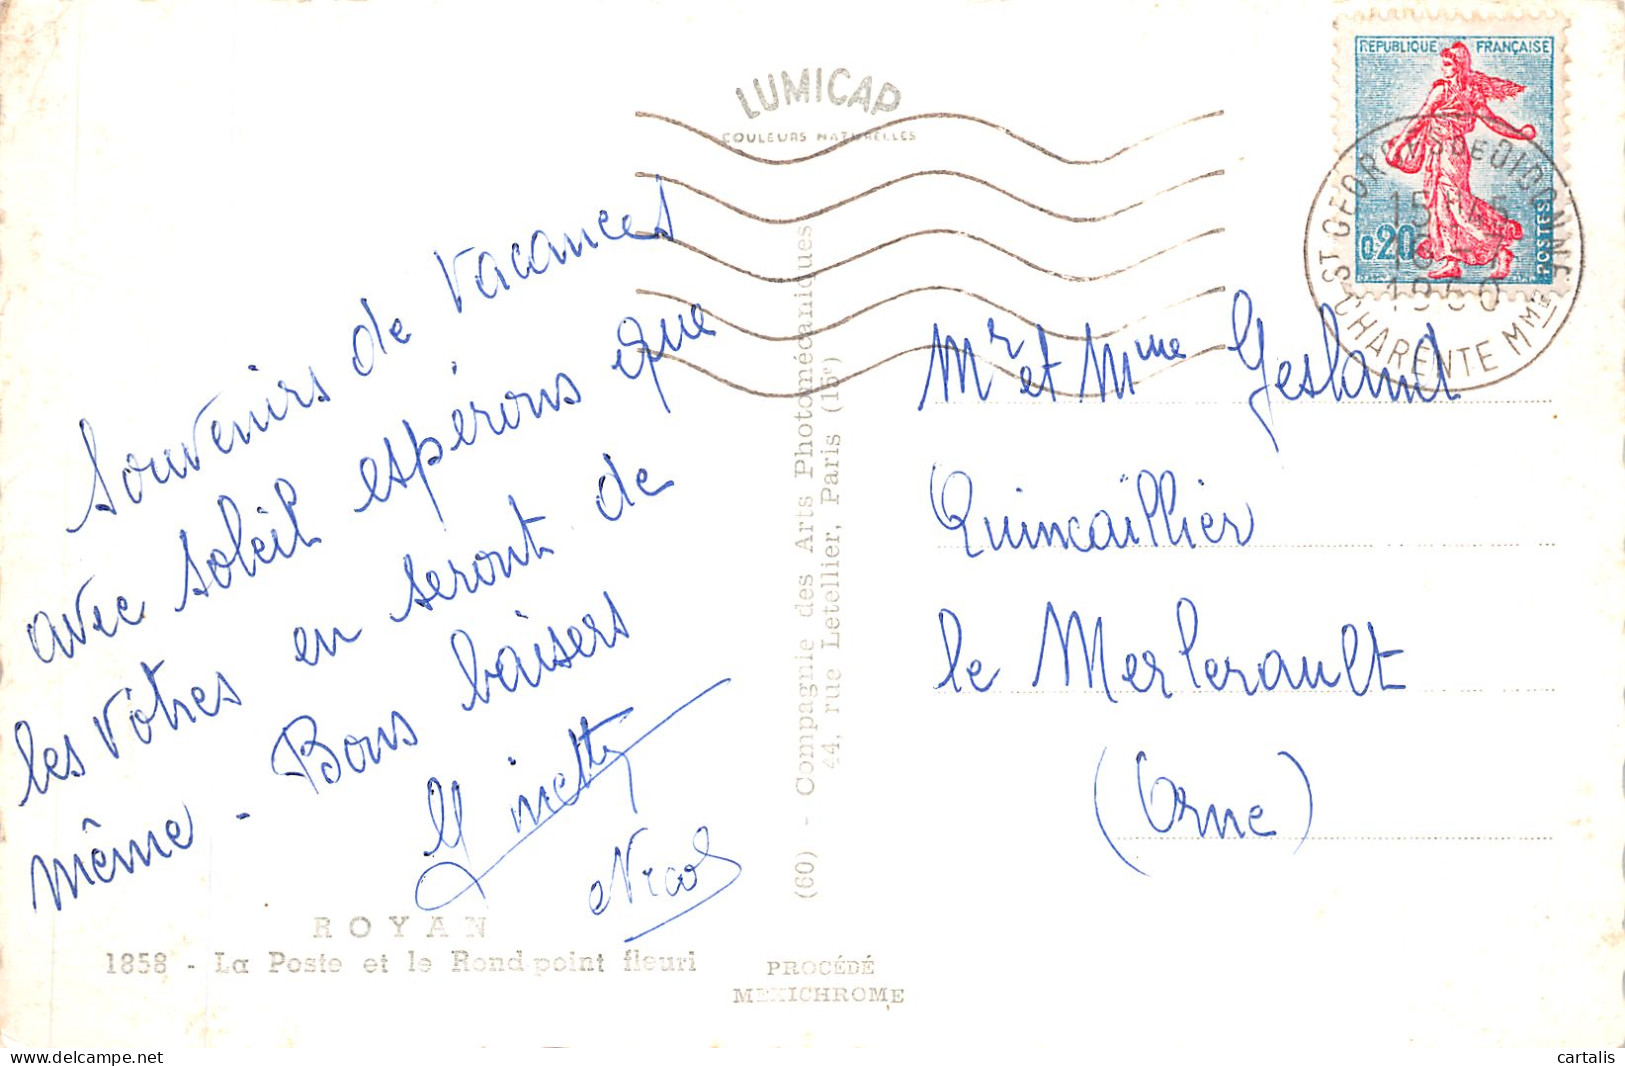 LUMICAP
COULEURS NATURELLES
REPUBLIQUE FRANÇAISE
0,20
POSTES
ST GEORGES DE DIDONNE
CHARENTE MME
Souvenirs de vacances
avec soleil espérons que
les vôtres en seront de
même - Bons baisers
Ginetty
Nicol
Mr et Mme Gesland
Quincaillier
le Merlerault
(Orne)
(60) - Compagnie des Arts Photomécaniques
44, rue Letellier, Paris (15e)
ROYAN
1858 - La Poste et le Rond-point fleuri
PROCÉDÉ
MEXICHROME
www.delcampe.net
cartalis